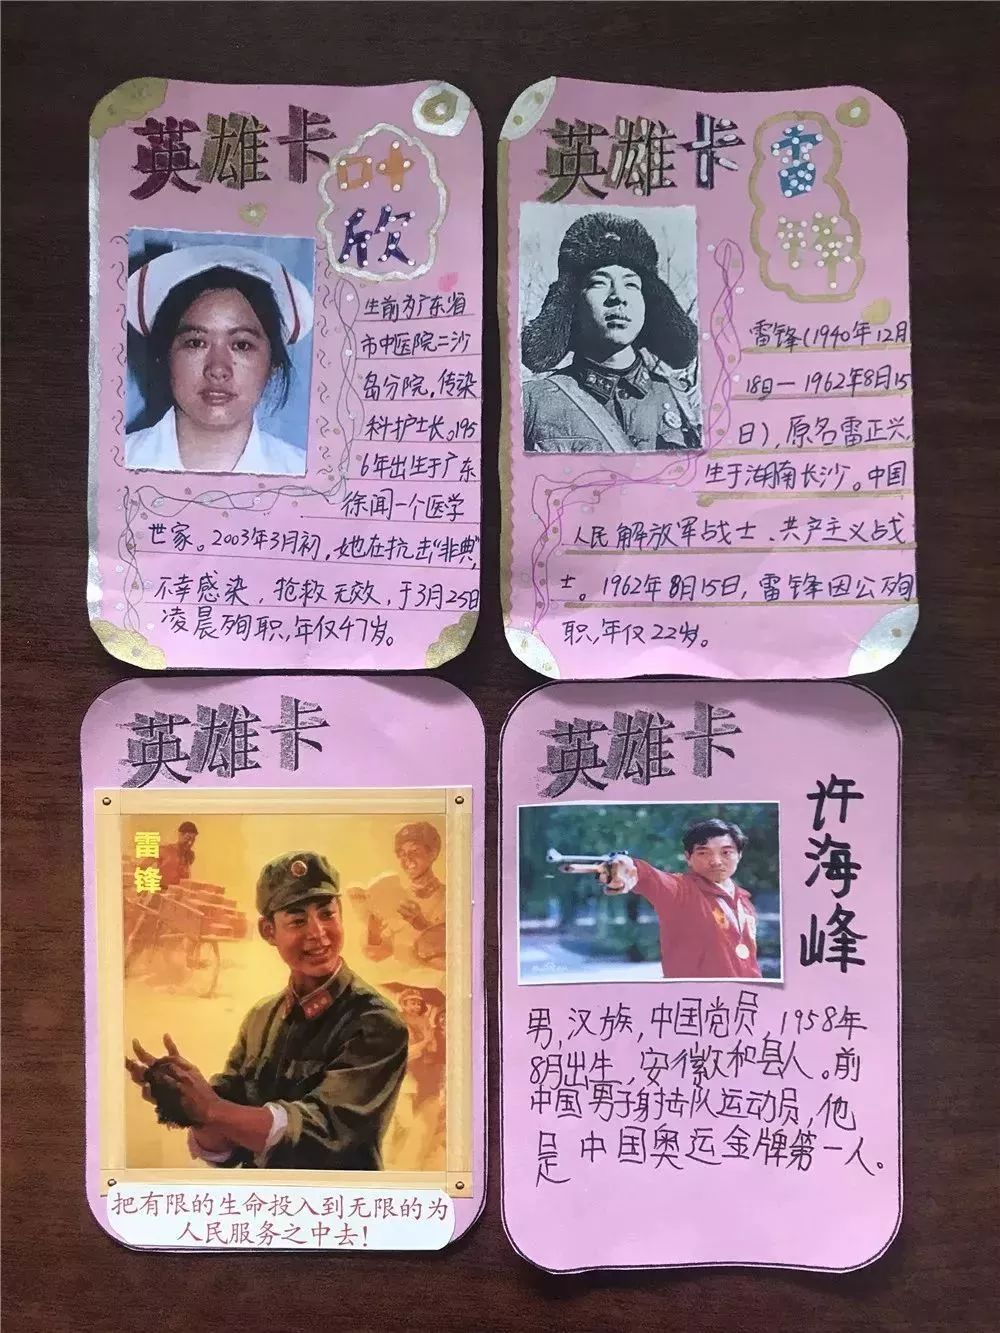 英雄卡
叶
欣
生前为广东省
市中医院二沙
岛分院，传染
科护士长。195
6年出生于广东
徐闻一个医学
世家。2003年3月初，她在抗击“非典”，
不幸感染，抢救无效，于3月25日
凌晨殉职，年仅47岁。
英雄卡
雷
锋
雷锋（1940年12月
18日—1962年8月15
日），原名雷正兴，
生于湖南长沙。中国
人民解放军战士、共产主义战
士。1962年8月15日，雷锋因公殉
职，年仅22岁。
英雄卡
雷
锋
把有限的生命投入到无限的为
人民服务之中去！
英雄卡
许
海
峰
男，汉族，中国党员，1958年
8月出生，安徽和县人。前
中国男子射击队运动员，他
是中国奥运金牌第一人。